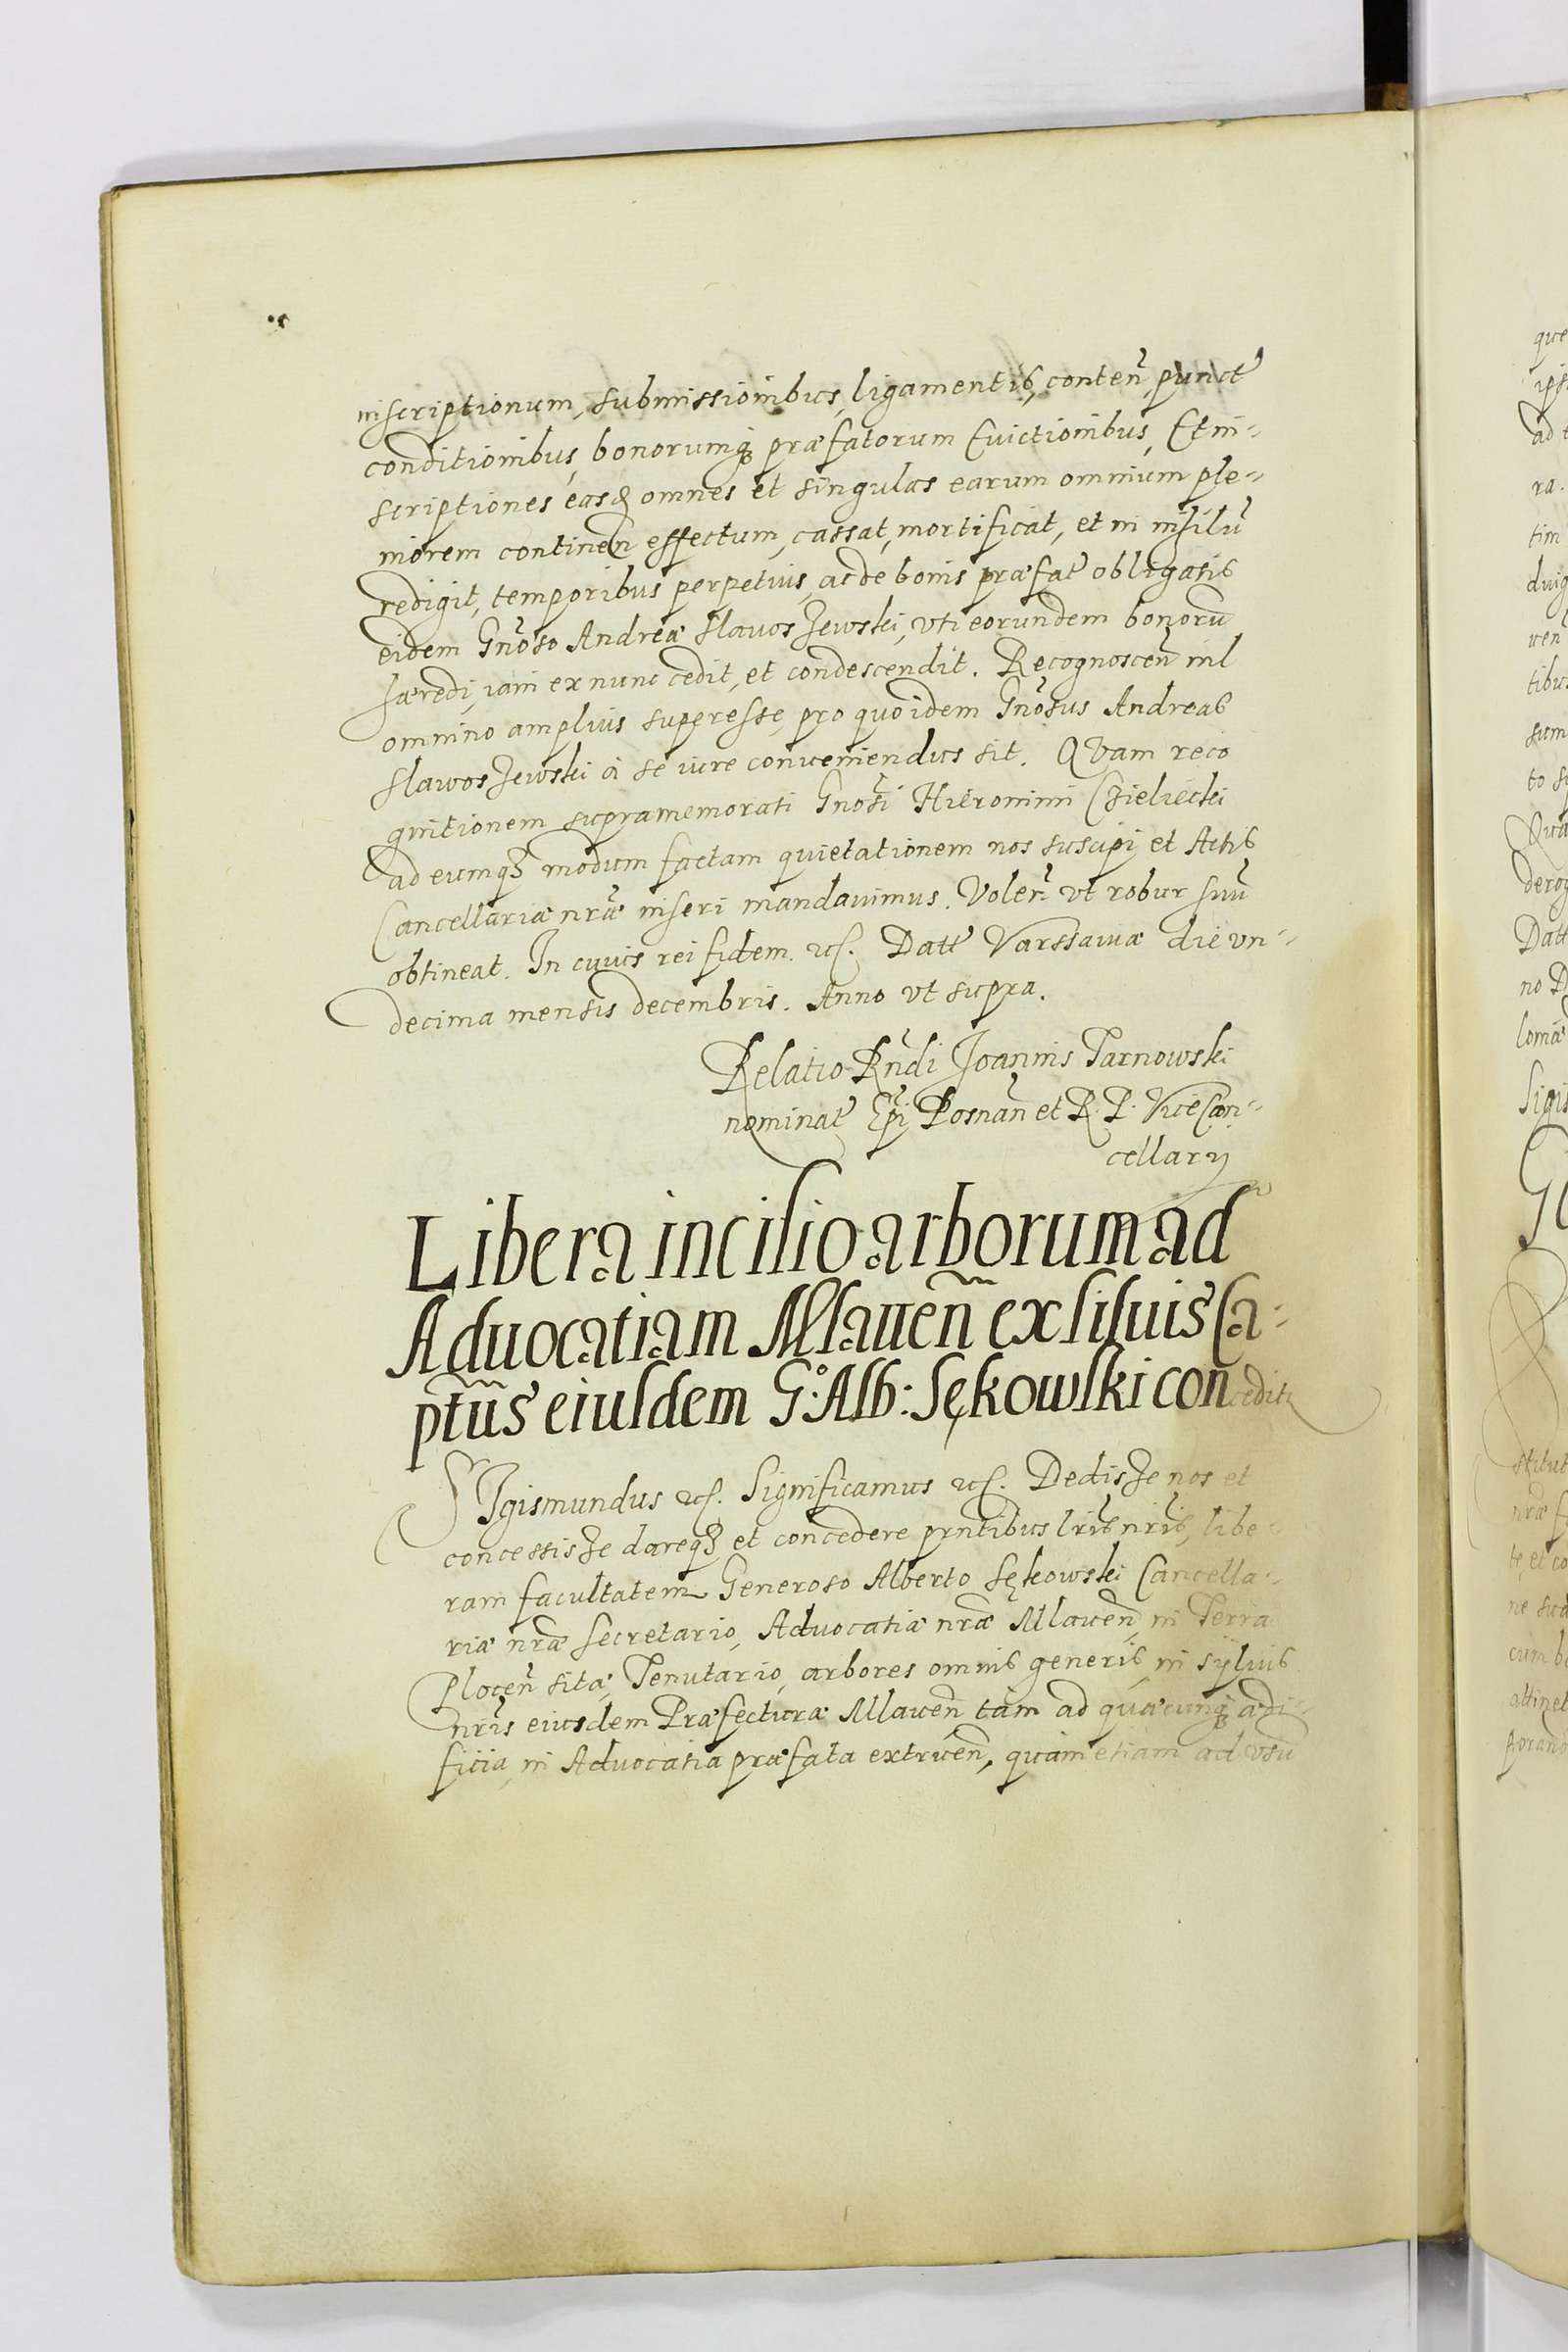 inscriptionum, submissionibus, ligamentis, conten̄, punct
conditionibus, bonorumq; præfatorum Euictionibus, Et in-
scriptiones easq; omnes et singulas earum omnium ple-
niorem continen̄ effectum, cassat, mortificat, et in nihilū
redigit, temporibus perpetuis, ac de bonis præfat obligatis
eidem Gnoso Andreæ Slauoszewski, vti eorundem bonorū
hæredi, iam ex nunc cedit, et condescendit. Recognoscen̄ nil
omnino amplius superesse, pro quo idem Gnosus Andreas
Slawoszewski à se iure conueniendus sit. QVam reco
gnitionem supramemorati Gnosi Hieronimi Czieliecki
ad eumq; modum factam quietationem nos suscipi et Actis
Cancellariæ nræ inseri mandauimus. Volen̄ vt robur suū
obtineat. In cuius rei fidem. etc. Datt Varssauiæ die vn-
decima mensis decembris. Anno vt supra.
Relatio Rn̄di Joannis Tarnowski
nominat Ep̄i Posnan̄ et R. P. ViceCan-
cellarij
Libera incisio arborum ad
Aduocatiam Mlauen̄ ex siluis Ca-
ptūs eiusdem G.° Alb: Sękowski conceditr
SIgismundus etc. Significamus etc. Dedisse nos et
concessisse dareq; et concedere prn̄tibus lris nris, libe-
ram facultatem Generoso Alberto Sękowski Cancella-
riæ nræ Secretario, Aduocatiæ nræ Mlauen̄, in Terra
Plocen̄ sitæ, Tenutario, arbores omnis generis, in syluis
nris eiusdem Præfecturæ Mlauen̄, tam ad quæcunq; ædi-
ficia, in Aduocatia præfata extruen̄, quam etiam ad vsū
que
ad
ra.
tim
tibus
sum
to
Datt
no